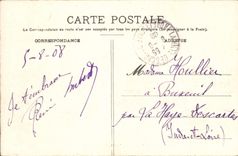 CARTE POSTALE
La Correspondance au recto n'est pas acceptée par tous les pays étrangers (Se renseigner à la Poste)
CORRESPONDANCE
ADRESSE
5-8-08
Madame Houllier
à Buxeuil
par La Haye-Descartes
(Indre-et-Loire)
Je t'embrasse